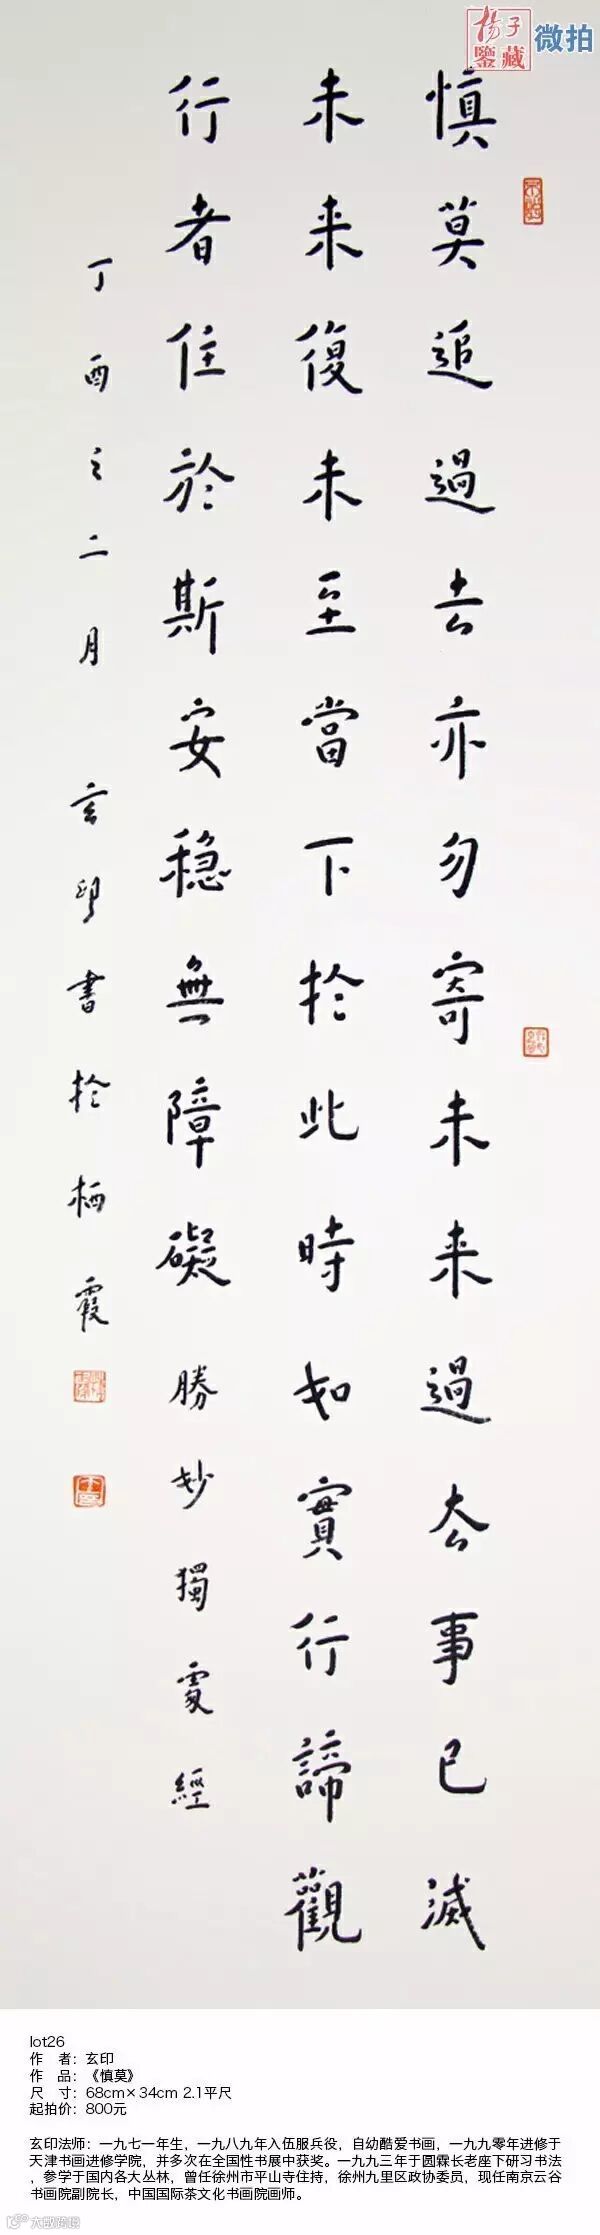 揚子
鑒藏
微拍
慎莫追過去亦勿寄未来過去事已滅
未来復未至當下於此時如實行諦觀
行者住於斯安穩無障礙勝妙獨處經
丁酉之二月玄印書於栖霞
lot26
作 者：玄印
作 品：《慎莫》
尺 寸：68cm×34cm 2.1平尺
起拍价：800元
玄印法师：一九七一年生，一九八九年入伍服兵役，自幼酷爱书画，一九九零年进修于
天津书画进修学院，并多次在全国性书展中获奖。一九九三年于圆霖长老座下研习书法
，参学于国内各大丛林，曾任徐州市平山寺住持，徐州九里区政协委员，现任南京云谷
书画院副院长，中国国际茶文化书画院画师。
大数跨境